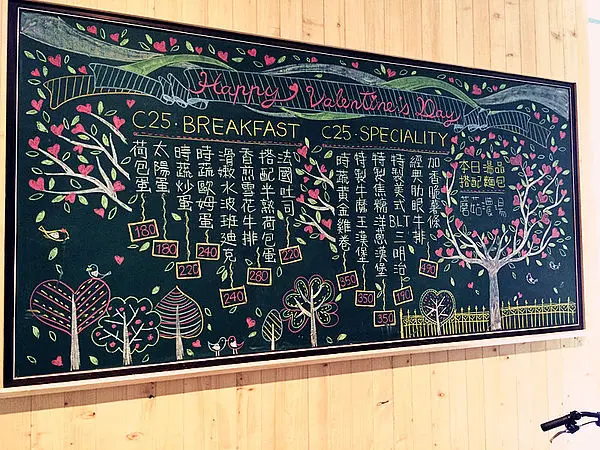 Happy Valentine's Day!
C25·BREAKFAST
荷包蛋
180
太陽蛋
180
時蔬炒蛋
220
時蔬歐姆蛋
240
滑嫩水波班迪克
240
香煎雪花牛排
搭配半熟荷包蛋
280
法國吐司
220
C25·SPECIALITY
時蔬黃金雞卷
350
特製牛魔王漢堡
350
特製焦糖洋蔥漢堡
350
特製美式BLT三明治
190
經典肋眼牛排
加香脆薯條
490
本日湯品
搭配麵包
蘑菇濃湯